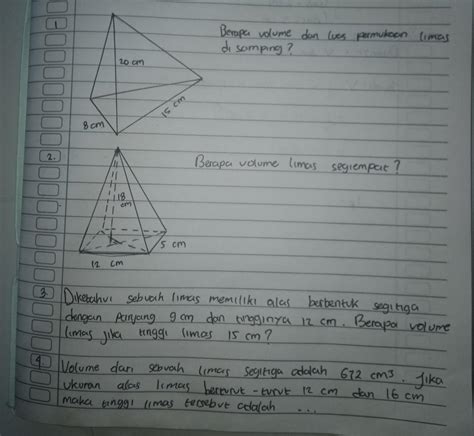 1 Berapa volume dan luas permukaan limas
di samping?
20 cm
8 cm
15 cm
2. Berapa volume limas segiempat?
18
cm
5 cm
12 cm
3 Diketahui sebuah limas memiliki alas berbentuk segitiga
dengan panjang 9 cm dan tingginya 12 cm. Berapa volume
limas jika tinggi limas 15 cm?
4 Volume dari sebuah limas segitiga adalah 672 cm³. Jika
ukuran alas limas berturut-turut 12 cm dan 16 cm
maka tinggi limas tersebut adalah ...